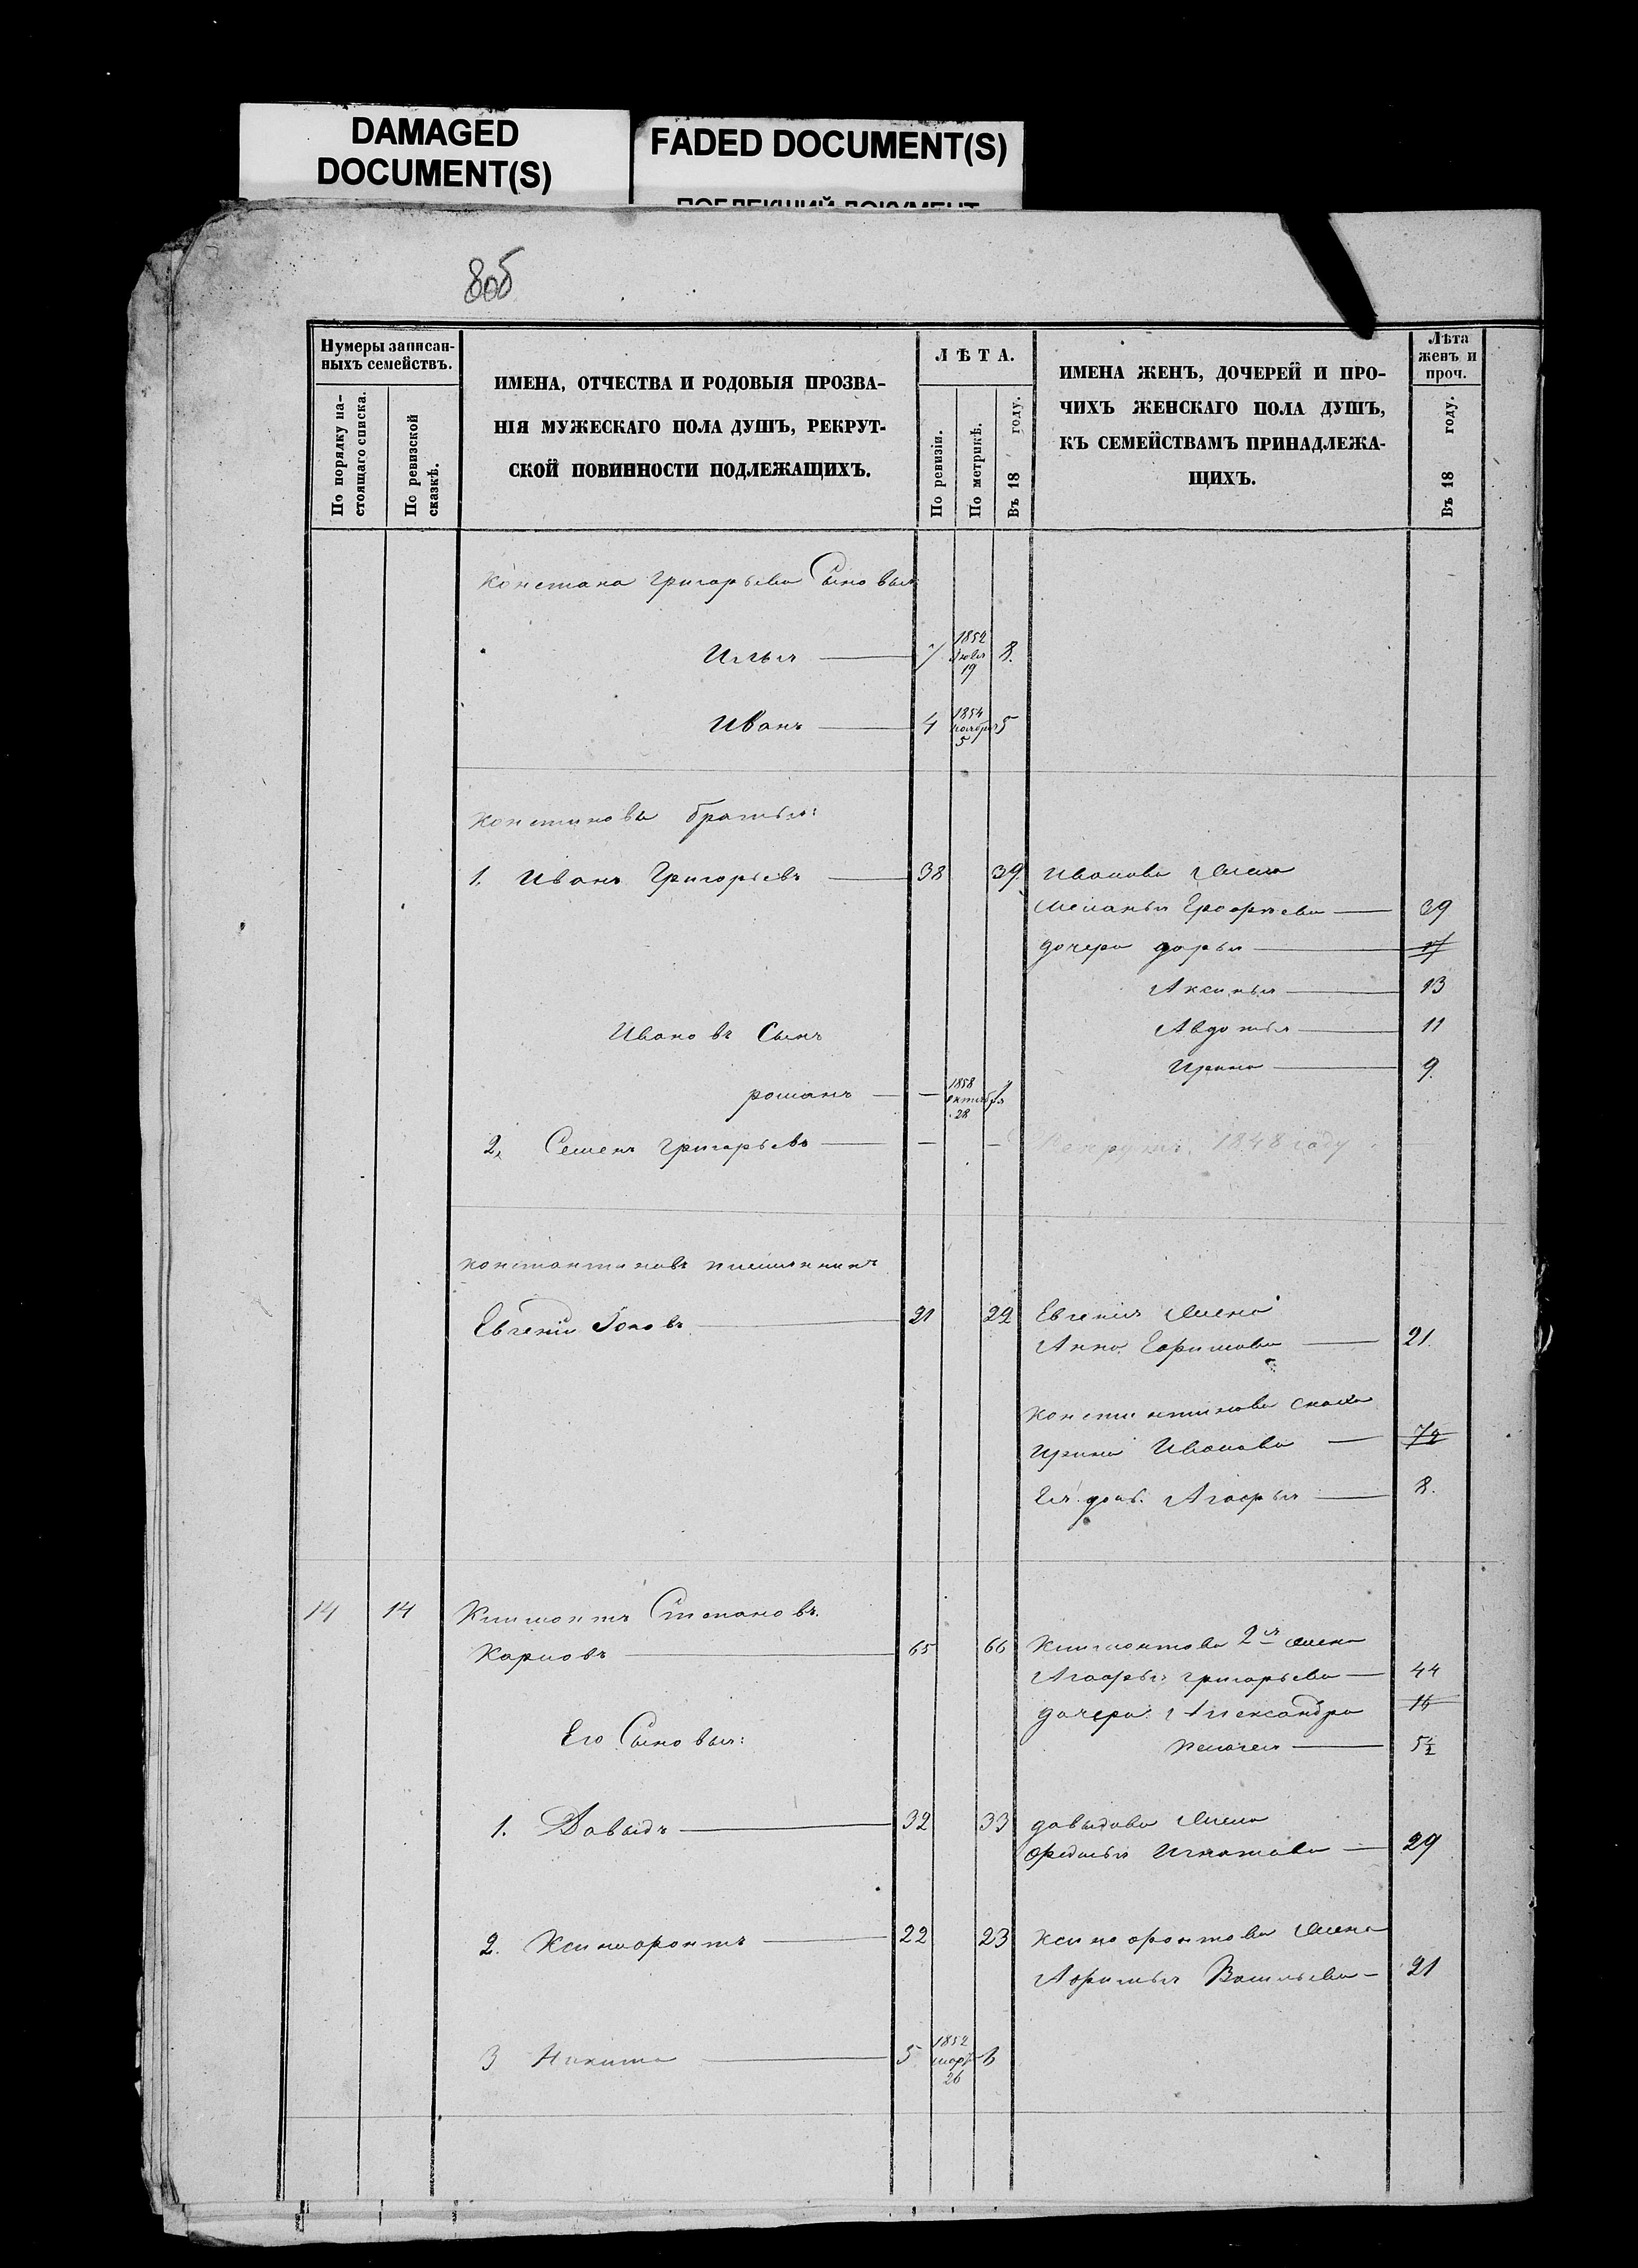 DAMAGED
DOCUMENT(S)
FADED DOCUMENT(S)
8об
Нумеры записан-
ныхъ семействъ.
По порядку на-
стоящаго списка.
По ревизской
сказкѣ.
ИМЕНА, ОТЧЕСТВА И РОДОВЫЯ ПРОЗВА-
НІЯ МУЖЕСКАГО ПОЛА ДУШЪ, РЕКРУТ-
СКОЙ ПОВИННОСТИ ПОДЛЕЖАЩИХЪ.
ЛѢТА.
По ревизіи.
По метрикѣ.
Въ 18 году.
ИМЕНА ЖЕНЪ, ДОЧЕРЕЙ И ПРО-
ЧИХЪ ЖЕНСКАГО ПОЛА ДУШЪ,
КЪ СЕМЕЙСТВАМЪ ПРИНАДЛЕЖА-
ЩИХЪ.
Лѣта
женъ и
проч.
Въ 18 году.
Григорьева Сыновья
Илья 7 1852 19 8.
Иванъ 4 1854 ноября 5 5
братья:
1. Иванъ Григорьевъ 38 39. Иванова жена
Меланья Георгіева 39
дочери дарья 17
Аксинья 13
Авдотья 11
Ивановъ Сынъ
Ирина 9.
романъ — 1858 октября 28
2, Семенъ Григорьевъ — — Рекрутъ 1848 году
Константиновъ племянникъ
Евгеній 21 22 Евгенія жена
Анна Ефимова 21.
Константинова сноха
Ирина Иванова
Ея дочь Агафья 8.
14 14 Климонтъ Степановъ.
Карповъ 65 66 Климонтова 2я жена
Агафья Григорьева 44
дочери: Александра 16
Пелагея 5½
Его Сыновья:
1. Давыдъ 32 33 давыдова жена
Федосья Игнатова 29
2. Ксинофонтъ 22 23 Ксинофонтова жена
Афимья Васильева 21
3 Никита 5 1852 март 26 6